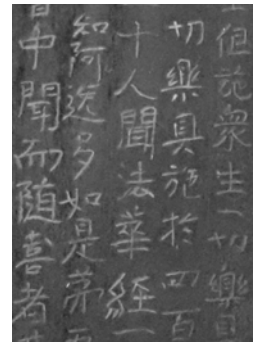 但施衆生一切樂具
切樂具施於四百
十人聞法華經一
知阿逸多如是第
中聞而随喜者